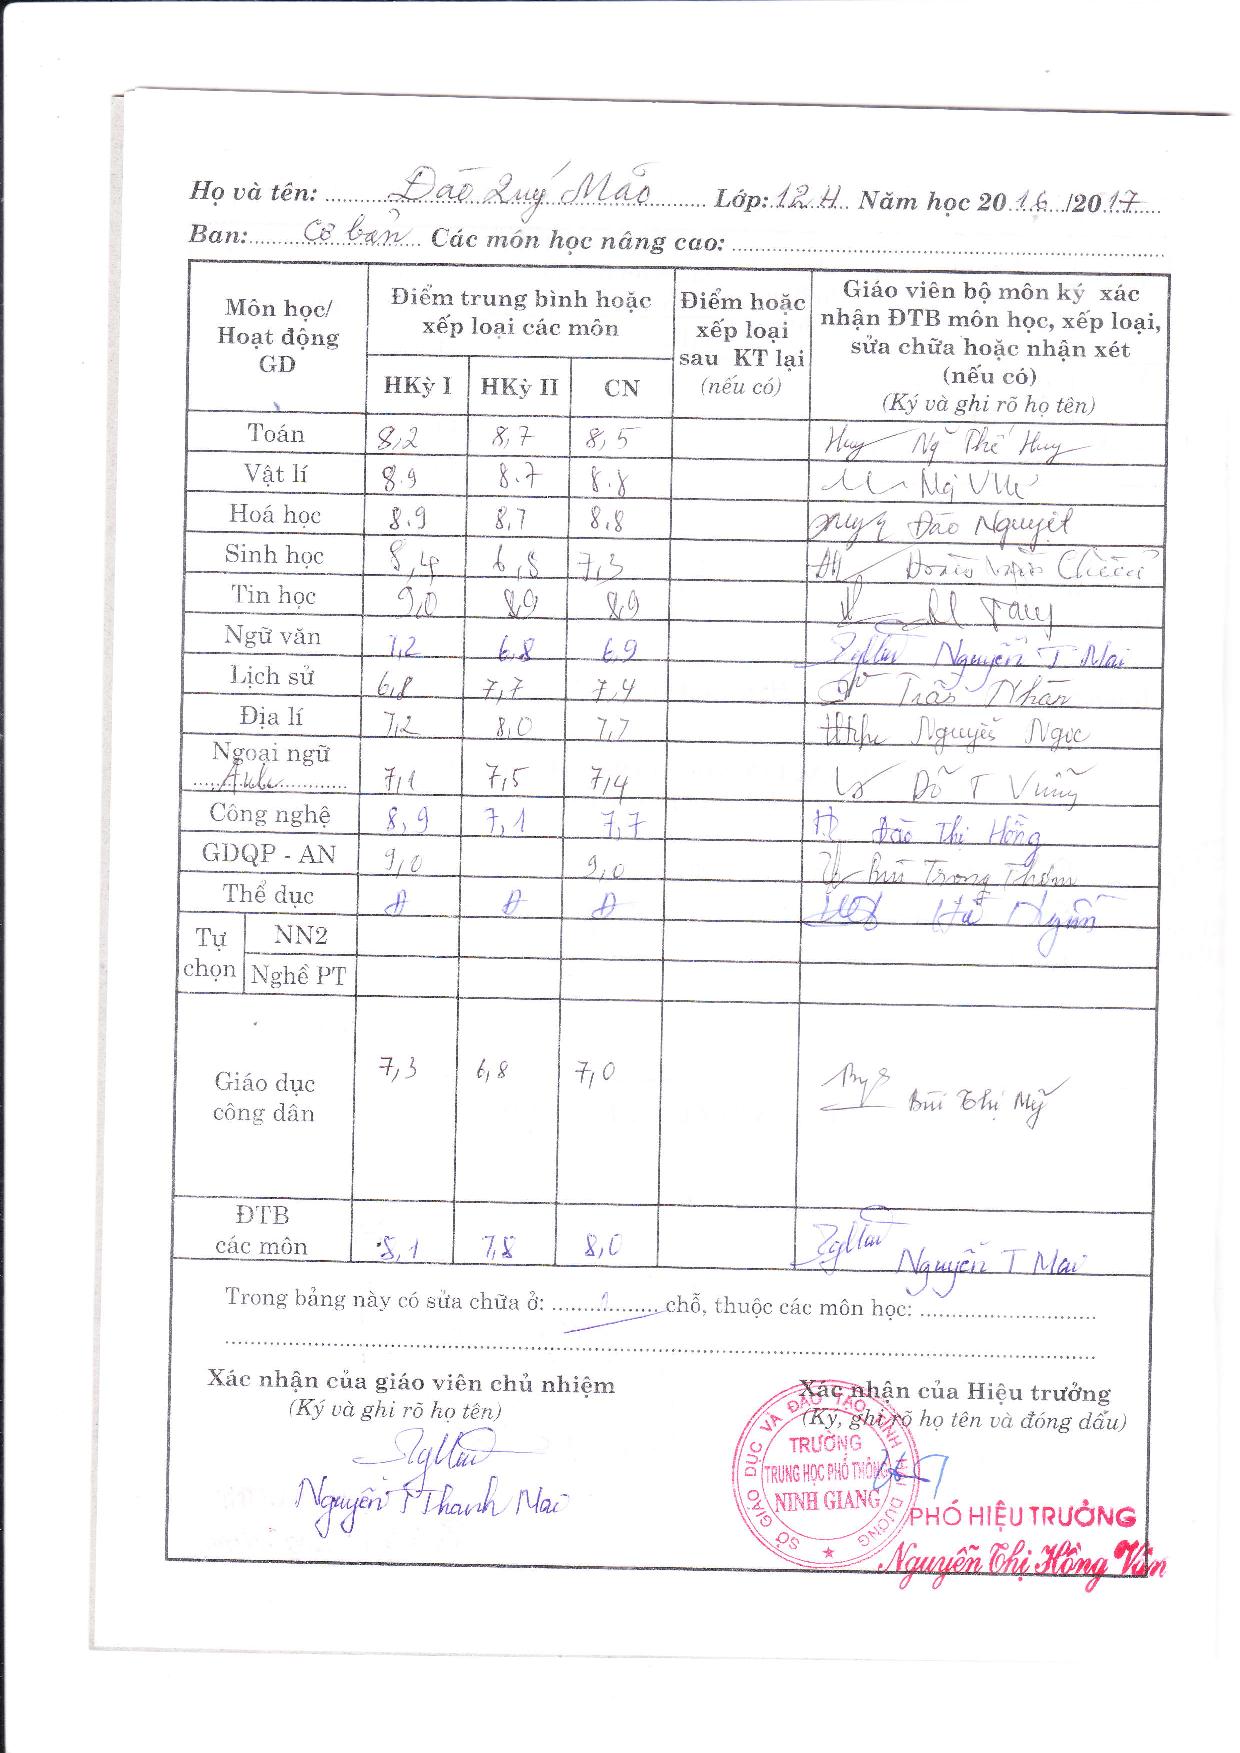 Họ và tên: Đào Quý Mão Lớp: 12H Năm học 2016/2017
Ban: Cơ bản Các môn học nâng cao:
Môn học/ Hoạt động GD
Điểm trung bình hoặc xếp loại các môn
Điểm hoặc xếp loại sau KT lại (nếu có)
Giáo viên bộ môn ký xác nhận ĐTB môn học, xếp loại, sửa chữa hoặc nhận xét (nếu có) (Ký và ghi rõ họ tên)
HKỳ I HKỳ II CN
Toán 8,2 8,7 8,5 Huy Ng Thế Huy
Vật lí 8.9 8.7 8.8
Hoá học 8.9 8,7 8,8 Đào Nguyệt
Sinh học 8,4 6,8 7,3 Đoàn Văn
Tin học 9,0 8,9 8,9
Ngữ văn 7,2 6,8 6,9 Nguyễn T Mai
Lịch sử 6,8 7,7 7,4 Trần Nhàn
Địa lí 7,2 8,0 7,7 Nguyễn Ngọc
Ngoại ngữ
Anh 7,1 7,5 7,4 Đỗ T
Công nghệ 8,9 7,1 7,7 Đào Thị Hồng
GDQP - AN 9,0 9,0 Bùi Trọng Thơm
Thể dục Đ Đ Đ Hà Ngân
Tự chọn NN2
Nghề PT
Giáo dục công dân 7,3 6,8 7,0 Bùi Thị Mỹ
ĐTB các môn 8,1 7,8 8,0 Nguyễn T Mai
Trong bảng này có sửa chữa ở: chỗ, thuộc các môn học:
Xác nhận của giáo viên chủ nhiệm
(Ký và ghi rõ họ tên)
Nguyễn T Thanh Mai
Xác nhận của Hiệu trưởng
(Ký, ghi rõ họ tên và đóng dấu)
SỞ GIÁO DỤC VÀ ĐÀO TẠO TỈNH HẢI DƯƠNG
TRƯỜNG
TRUNG HỌC PHỔ THÔNG
NINH GIANG
PHÓ HIỆU TRƯỞNG
Nguyễn Thị Hồng Vân